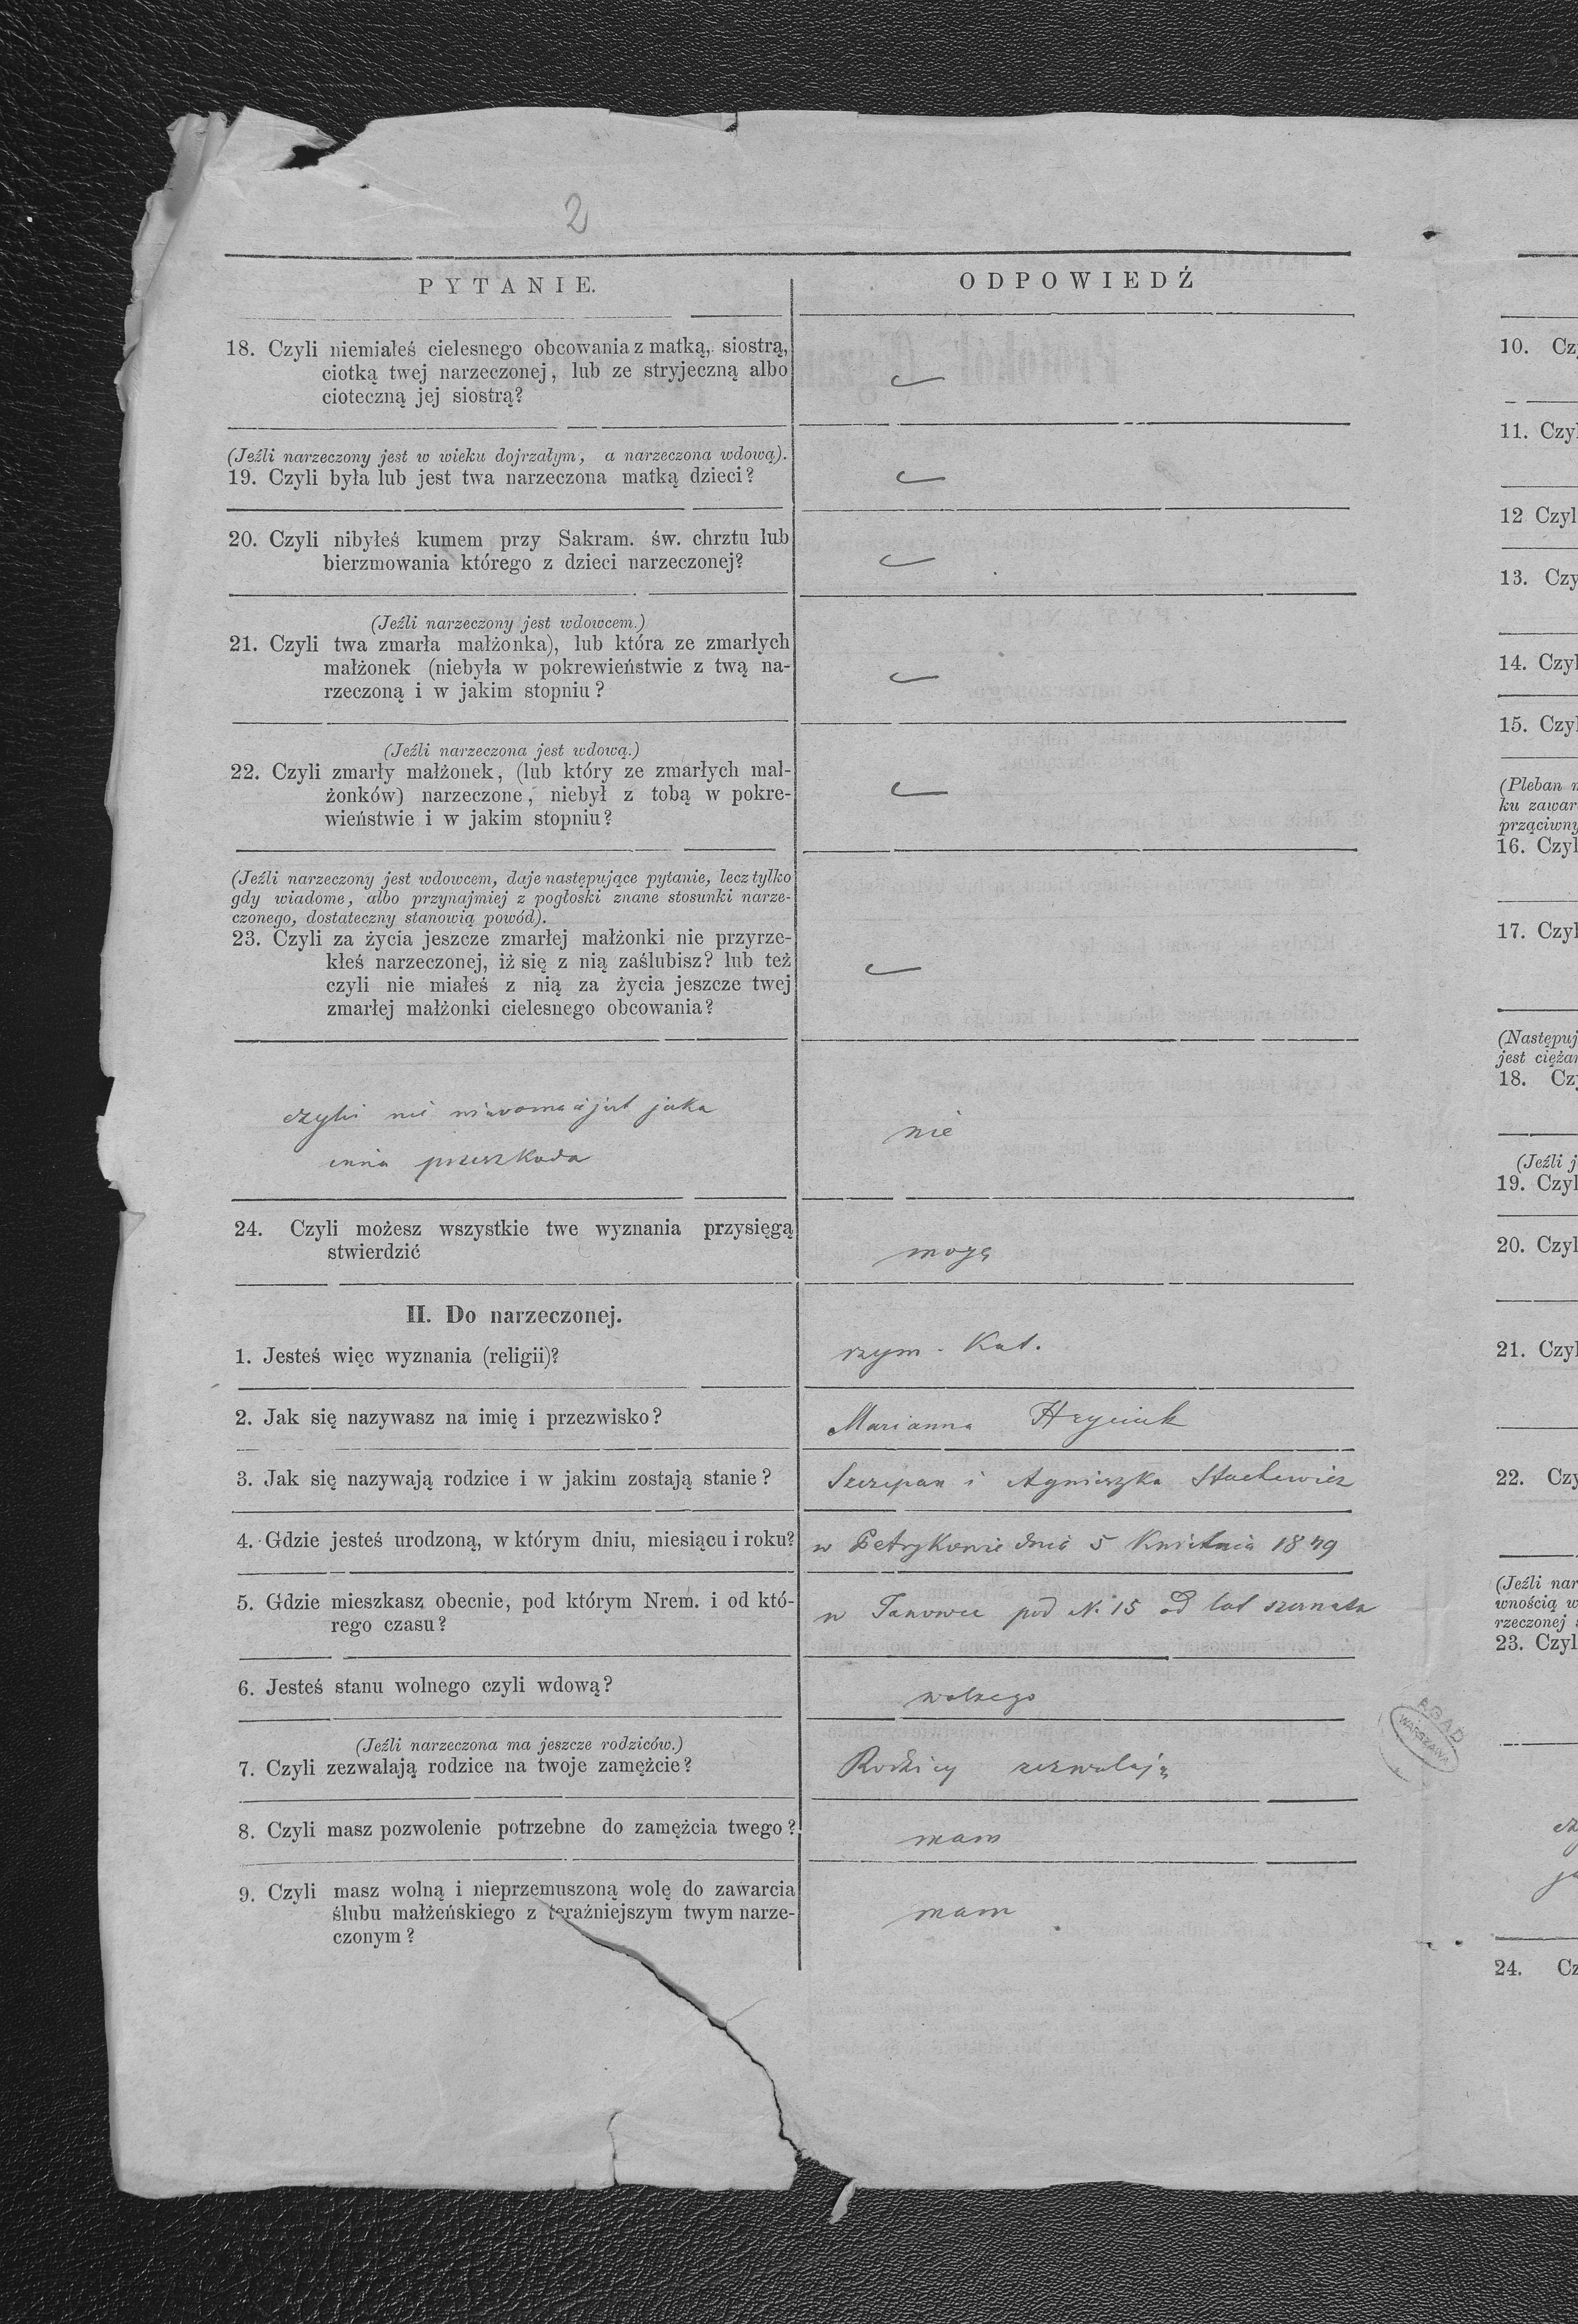 2
PYTANIE.
ODPOWIEDŹ
18. Czyli niemiałeś cielesnego obcowania z matką, siostrą,
ciotką twej narzeczonej, lub ze stryjeczną albo
cioteczną jej siostrą?
(Jeźli narzeczony jest w wieku dojrzałym, a narzeczona wdową).
19. Czyli była lub jest twa narzeczona matką dzieci?
20. Czyli nibyłeś kumem przy Sakram. św. chrztu lub
bierzmowania którego z dzieci narzeczonej?
(Jeźli narzeczony jest wdowcem.)
21. Czyli twa zmarła małżonka), lub która ze zmarłych
małżonek (niebyła w pokrewieństwie z twą na-
rzeczoną i w jakim stopniu?
(Jeźli narzeczona jest wdową.)
22. Czyli zmarły małżonek, (lub który ze zmarłych mał-
żonków) narzeczone, niebył z tobą w pokre-
wieństwie i w jakim stopniu?
(Jeźli narzeczony jest wdowcem, daje następujące pytanie, lecz tylko
gdy wiadome, albo przynajmiej z pogłoski znane stosunki narze-
czonego, dostateczny stanowią powód).
23. Czyli za życia jeszcze zmarłej małżonki nie przyrze-
kłeś narzeczonej, iż się z nią zaślubisz? lub też
czyli nie miałeś z nią za życia jeszcze twej
zmarłej małżonki cielesnego obcowania?
czyli nie jest jaka
inna przeszkoda
nie
24. Czyli możesz wszystkie twe wyznania przysięgą
stwierdzić
mogę
II. Do narzeczonej.
1. Jesteś więc wyznania (religii)?
rzym. Kat.
2. Jak się nazywasz na imię i przezwisko?
Marianna Hryciuk
3. Jak się nazywają rodzice i w jakim zostają stanie?
Szczepan i Agnieszka Stachewicz
4. Gdzie jesteś urodzoną, w którym dniu, miesiącu i roku?
w Petrykowie dnia 5 Kwietnia 1879
5. Gdzie mieszkasz obecnie, pod którym Nrem. i od któ-
rego czasu?
w Janowce pod N. 15 od lat
6. Jesteś stanu wolnego czyli wdową?
wolnego
(Jeźli narzeczona ma jeszcze rodziców.)
7. Czyli zezwalają rodzice na twoje zamężcie?
Rodzicy zezwalają
8. Czyli masz pozwolenie potrzebne do zamężcia twego?
mam
9. Czyli masz wolną i nieprzemuszoną wolę do zawarcia
ślubu małżeńskiego z teraźniejszym twym narze-
czonym?
mam
AGAD
WARSZAWA
10. Cz
11. Czyl
12 Czyl
13. Czy
14. Czyl
15. Czyl
(Pleban n
ku zawar
prząciwny
16. Czyl
17. Czyl
(Następuj
jest ciężar
18. Cz
(Jeźli j
19. Czyl
20. Czyl
21. Czyl
22. Czy
(Jeźli nar
wnością w
rzeczonej
23. Czyl
24. Cz